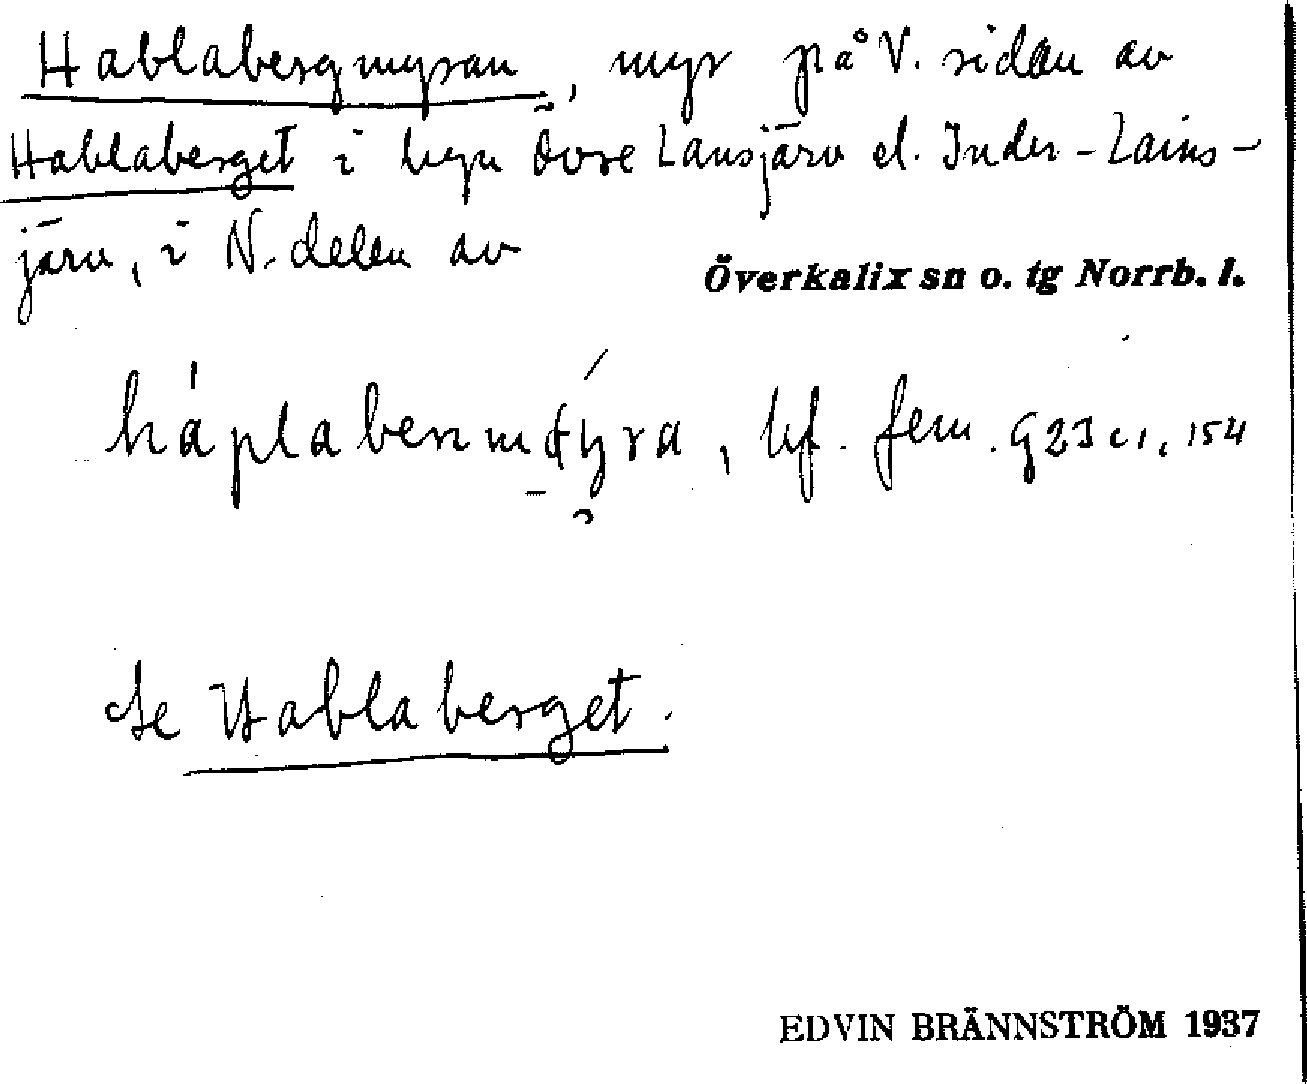 Hablabergmyran, myr på V. sidan av
Hablaberget i byn Övre Lansjärv el. Inder-Lains-
järv, i N. delen av
Överkalix sn o. tg Norrb. l.
bf. fem. G23 c1, 154
Se Hablaberget.
EDVIN BRÄNNSTRÖM 1937